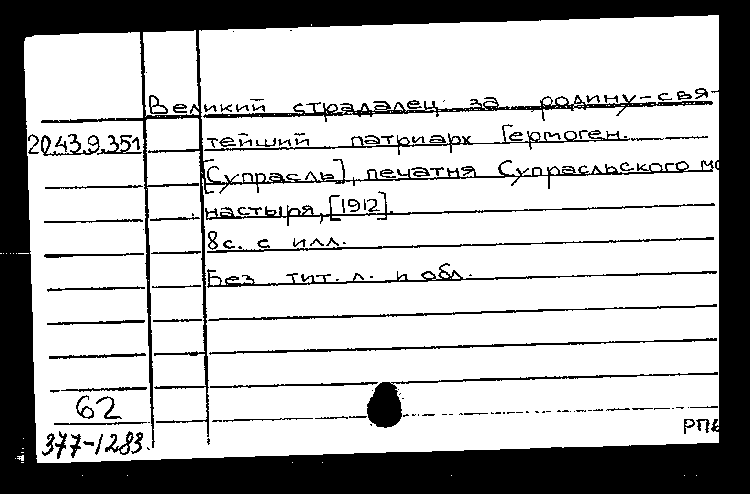 Великий страдалец за родину-свя-
2043.9.351 тейший патриарх Гермоген.
[Супрасль], печатня Супрасльского мо
настыря, [1912].
8 с. с илл.
Без тит. л. и обл.
62
377-1283